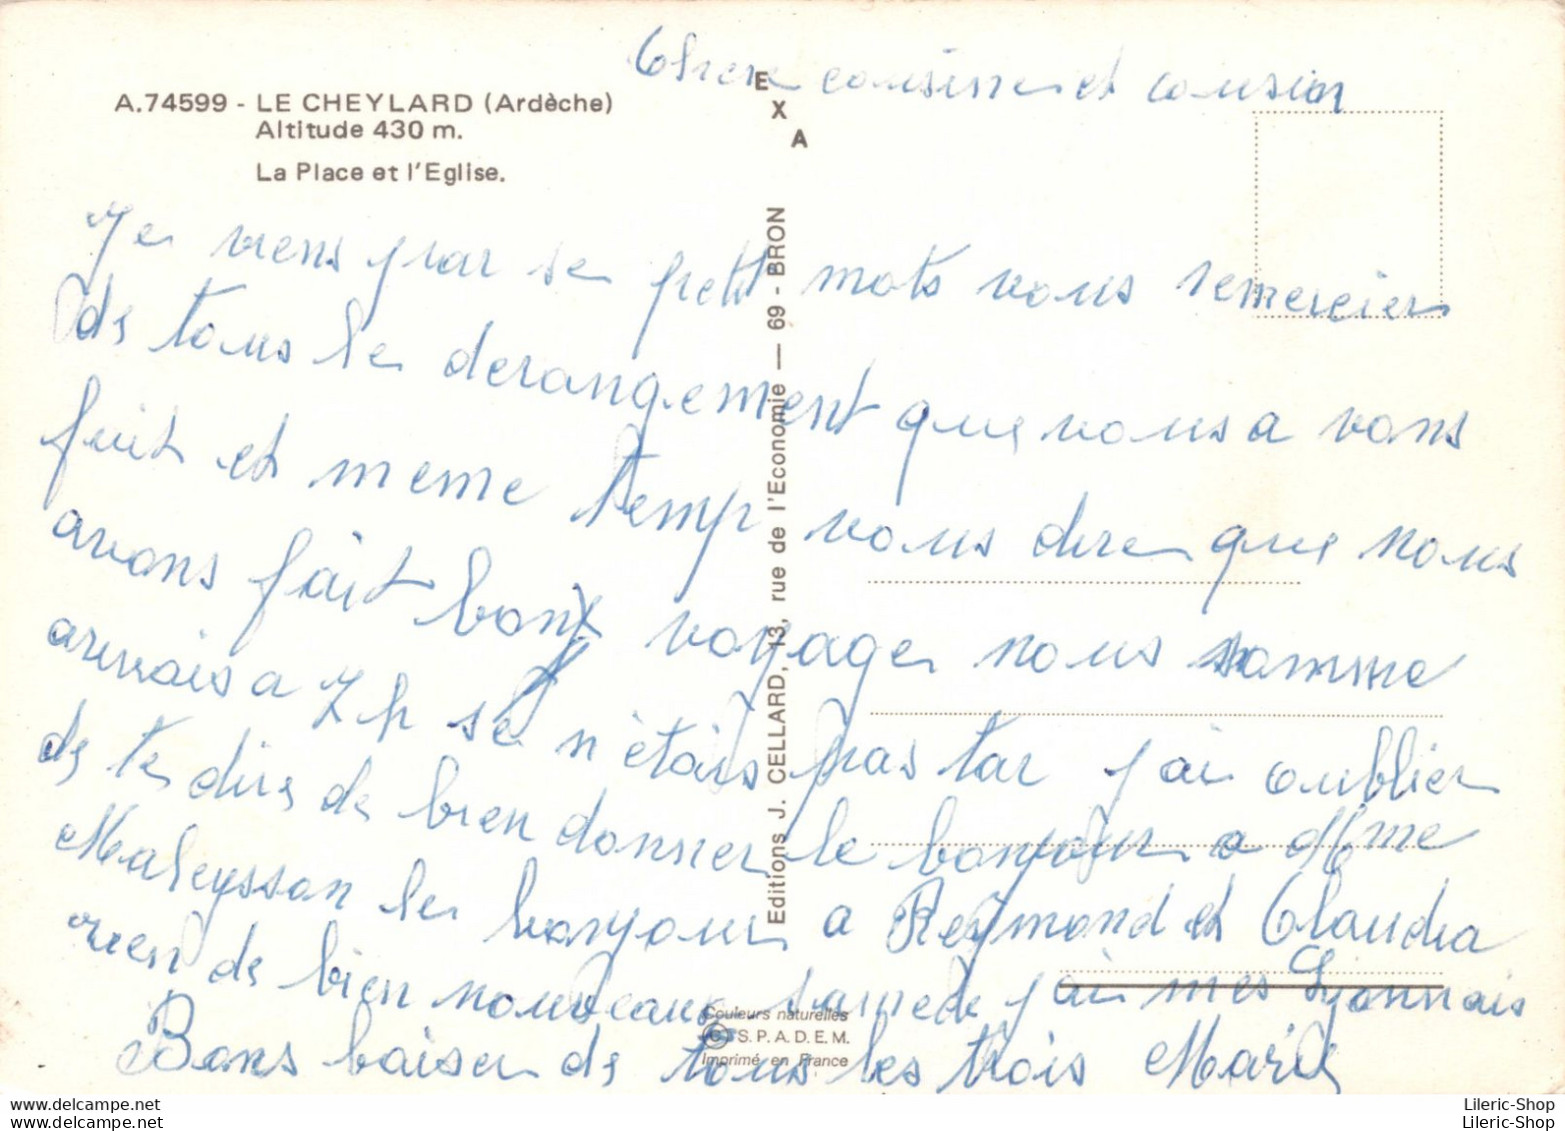 Chere cousine et cousin
A.74599 - LE CHEYLARD (Ardèche)
Altitude 430 m.
La Place et l'Eglise.
EXA
Editions J. CELLARD, 13, rue de l'Economie — 69 - BRON
Je viens par se petit mots vous remercier
de tous le derangement que vous a vons
fait et meme temp vous dire que nous
avons fait bon voyage nous somme
arrivais a 7 h se n'étais pas tar j'ai oublier
de te dire de bien donner le bonjour a Mme
Maleysson le bonjour a Reymond et Claudia
rien de bien nouveaux samedi j'ai mes Lyonnais
Bons baiser de tous les trois Marie
Couleurs naturelles
© S.P.A.D.E.M.
Imprimé en France
Lileric-Shop
Lileric-Shop
www.delcampe.net
www.delcampe.net